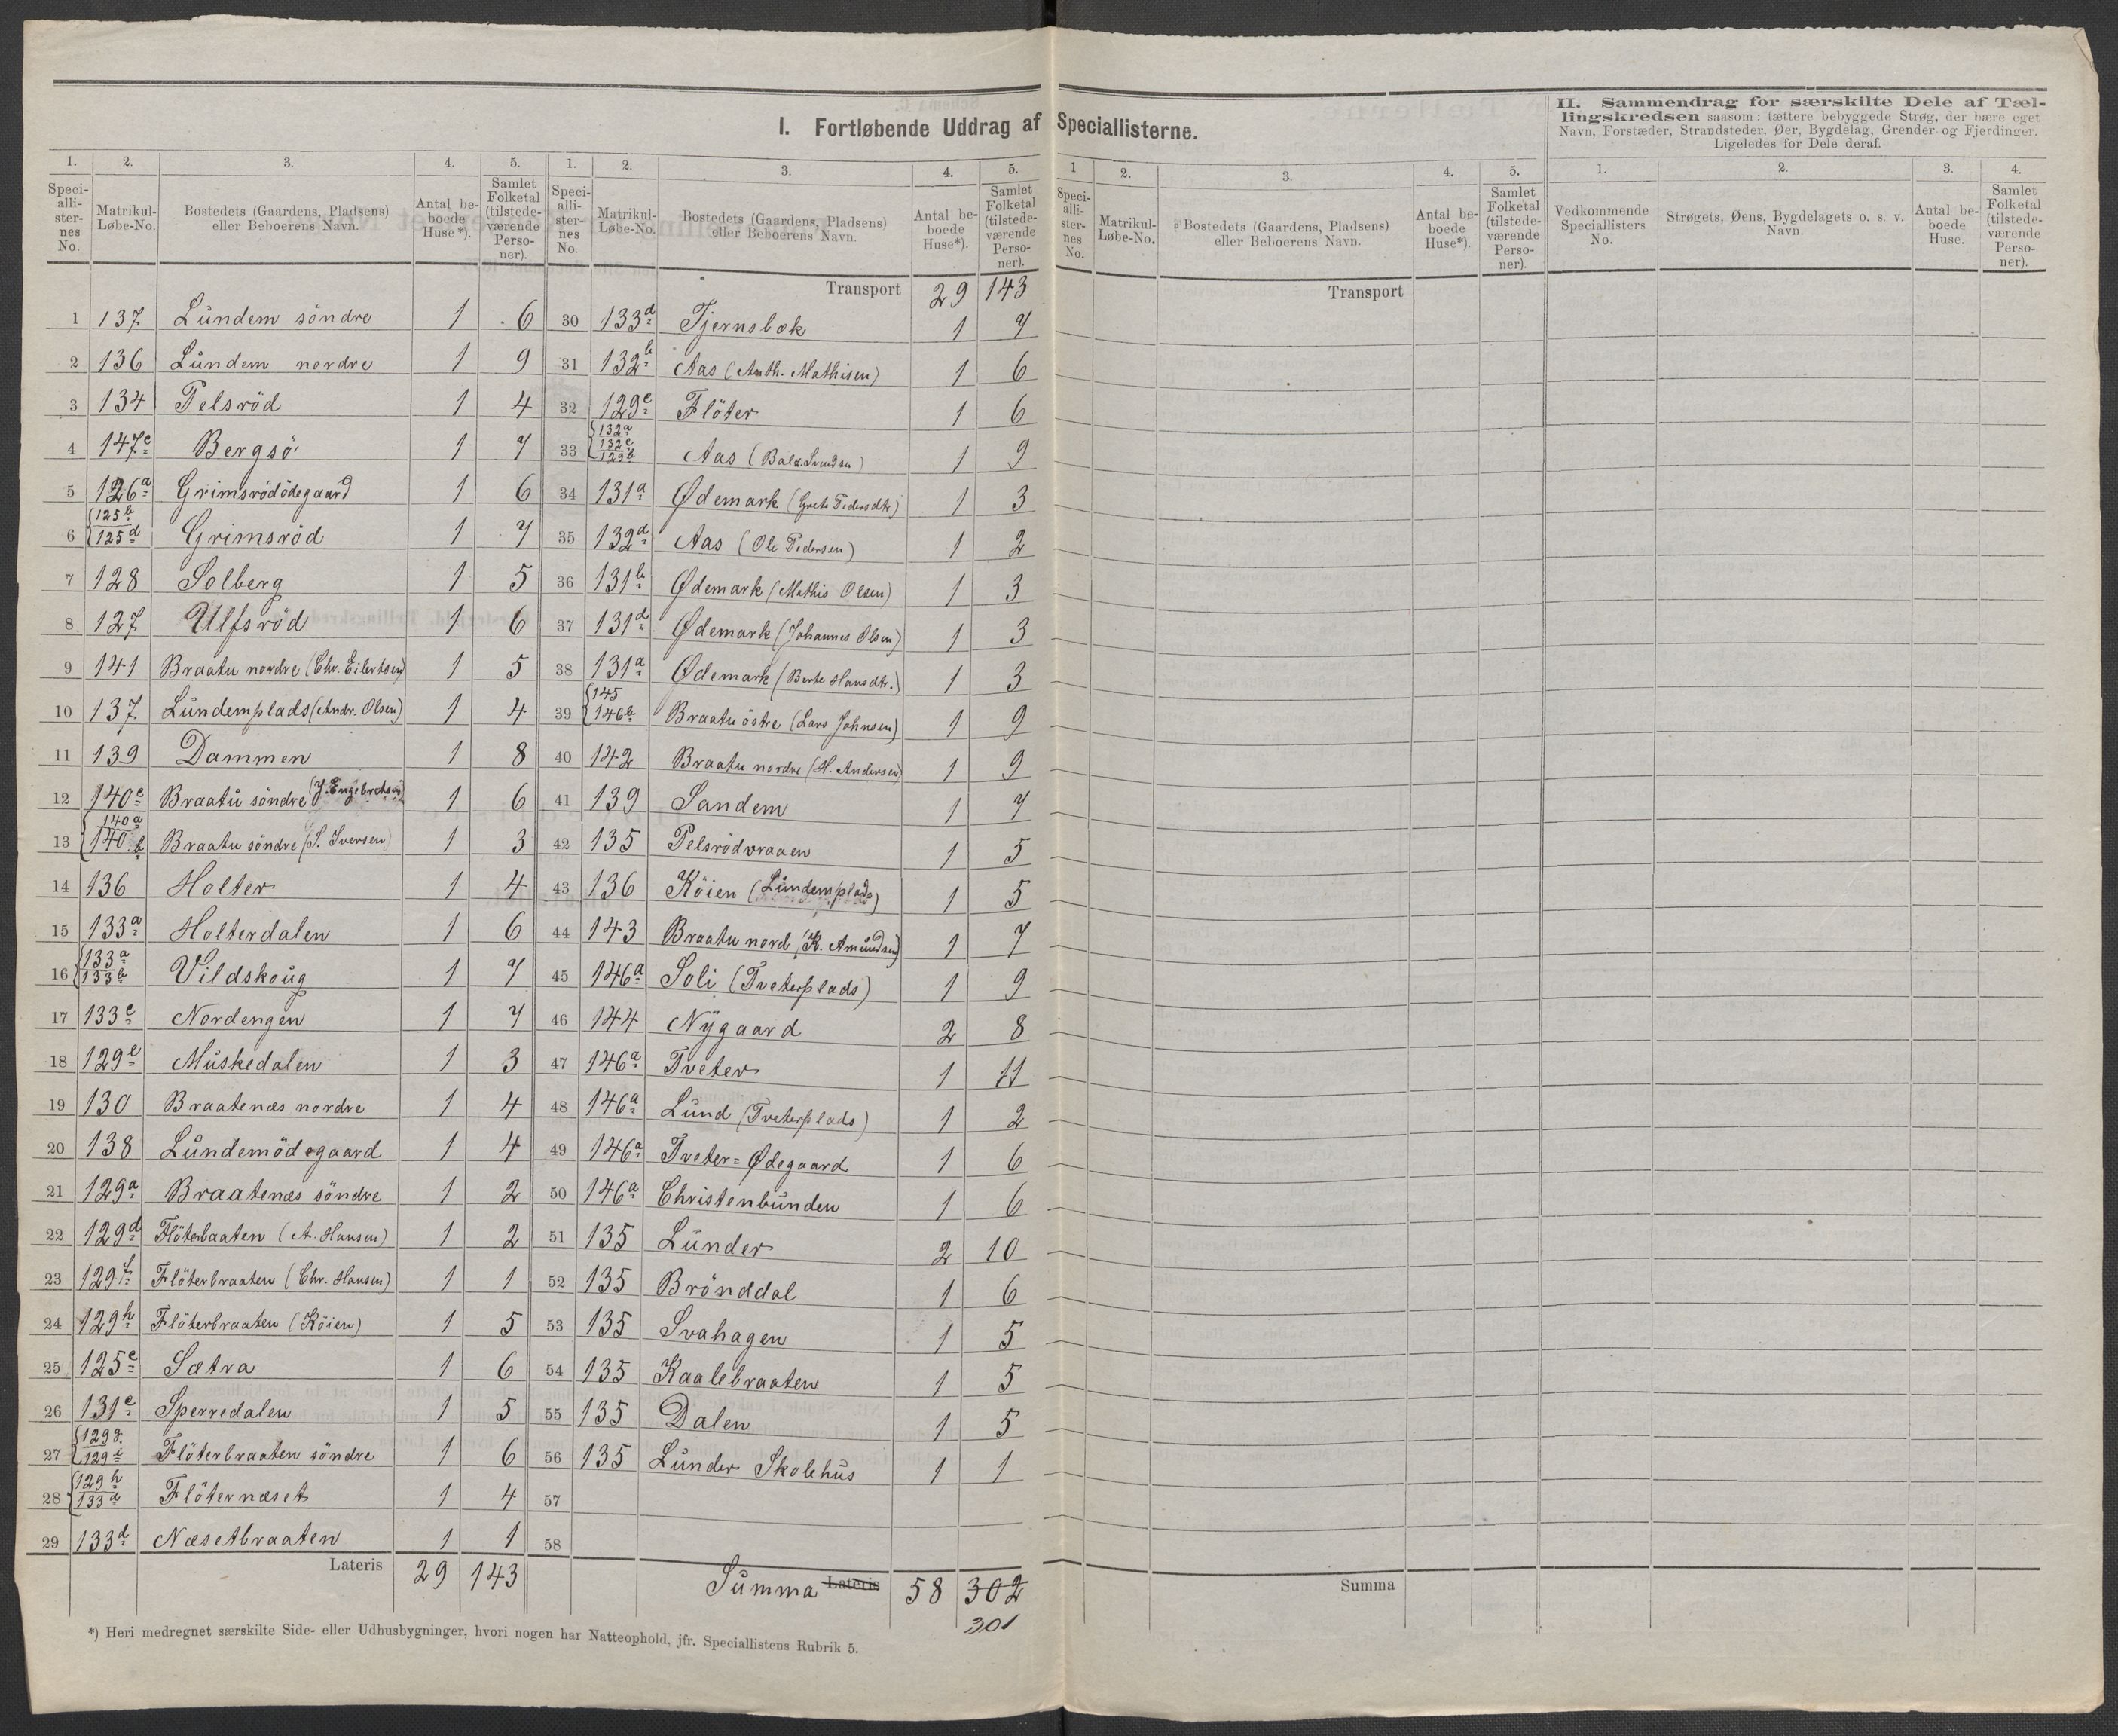 I. Fortløbende Uddrag af Speciallisterne.
II. Sammendrag for særskilte Dele af Tællingskredsen saasom: tættere bebyggede Strøg, der bære eget
Navn, Forstæder, Strandsteder, Øer, Bygdelag, Grender og Fjerdinger.
Ligeledes for Dele deraf.
1. 2. 3. 4. 5.
Speciallisternes No. Matrikul-Løbe-No. Bostedets (Gaardens, Pladsens) eller Beboerens Navn. Antal beboede Huse*). Samlet Folketal (tilstedeværende Personer).
1 137 Lundem söndre 1 6
2 136 Lundem nordre 1 9
3 134 Pelsröd 1 4
4 147c Bergsö 1 7
5 126a Grimsrödödegaard 1 6
6 125b 125d Grimsröd 1 7
7 128 Solberg 1 5
8 127 Ulfsröd 1 6
9 141 Braatu nordre (Chr. Eilertsen) 1 5
10 137 Lundemplads (Andr. Olsen) 1 4
11 139 Dammen 1 8
12 140c Braatu söndre (J. Engebretsen) 1 6
13 140a 140b Braatu söndre (S. Iversen) 1 3
14 136 Holter 1 4
15 133a Holterdalen 1 6
16 133a 133b Vildskoug 1 7
17 133c Nordengen 1 7
18 129e Muskedalen 1 3
19 130 Braatenæs nordre 1 4
20 138 Lundemödegaard 1 4
21 129a Braatenæs söndre 1 2
22 129d Flöterbaaten (A. Hansen) 1 2
23 129f Flöterbraaten (Chr. Hansen) 1 1
24 129h Flöterbraaten (Köien) 1 5
25 125c Sætra 1 6
26 131c Sperredalen 1 5
27 129g 129i Flöterbraaten söndre 1 6
28 129h 133d Flöternæset 1 4
29 133d Næsetbraaten 1 1
Lateris 29 143
1. 2. 3. 4. 5.
Speciallisternes No. Matrikul-Løbe-No. Bostedets (Gaardens, Pladsens) eller Beboerens Navn. Antal beboede Huse*). Samlet Folketal (tilstedeværende Personer).
Transport 29 143
30 133d Tjernsbæk 1 7
31 132b Aas (Anth. Mathisen) 1 6
32 129c Flöter 1 6
33 132a 132c 129b Aas (Balz. Svendsen) 1 9
34 131a Ødemark (Grete Pedersdtr) 1 3
35 132d Aas (Ole Pedersen) 1 2
36 131b Ødemark (Mathis Olsen) 1 3
37 131d Ødemark (Johannes Olsen) 1 3
38 131a Ødemark (Berte Hansdtr.) 1 3
39 145 146b Braatu östre (Lars Johnsen) 1 9
40 142 Braatu nordre (H. Andersen) 1 9
41 139 Sandem 1 7
42 135 Pelsrödvraaen 1 5
43 136 Köien (Lundemplads) 1 5
44 143 Braatu nord (K. Amundsen) 1 7
45 146a Soli (Tveterplads) 1 9
46 144 Nÿgaard 2 8
47 146a Tveter 1 11
48 146a Lund (Tveterplads) 1 2
49 146a Tveter=Ødegaard 1 6
50 146a Christenbunden 1 6
51 135 Lunder 2 10
52 135 Brönddal 1 6
53 135 Svahagen 1 5
54 135 Kaalebraaten 1 5
55 135 Dalen 1 5
56 135 Lunder Skolehus 1 1
57
58
Summa Lateris 58 302
301
*) Heri medregnet særskilte Side- eller Udhusbygninger, hvori nogen har Natteophold, jfr. Speciallistens Rubrik 5.
1 2. 3. 4. 5.
Speciallisternes No. Matrikul-Løbe-No. Bostedets (Gaardens, Pladsens) eller Beboerens Navn. Antal beboede Huse*). Samlet Folketal (tilstedeværende Personer).
Transport
Summa
1. 2. 3. 4.
Vedkommende Speciallisters No. Strøgets, Øens, Bygdelagets o. s. v. Navn. Antal beboede Huse. Samlet Folketal (tilstedeværende Personer).